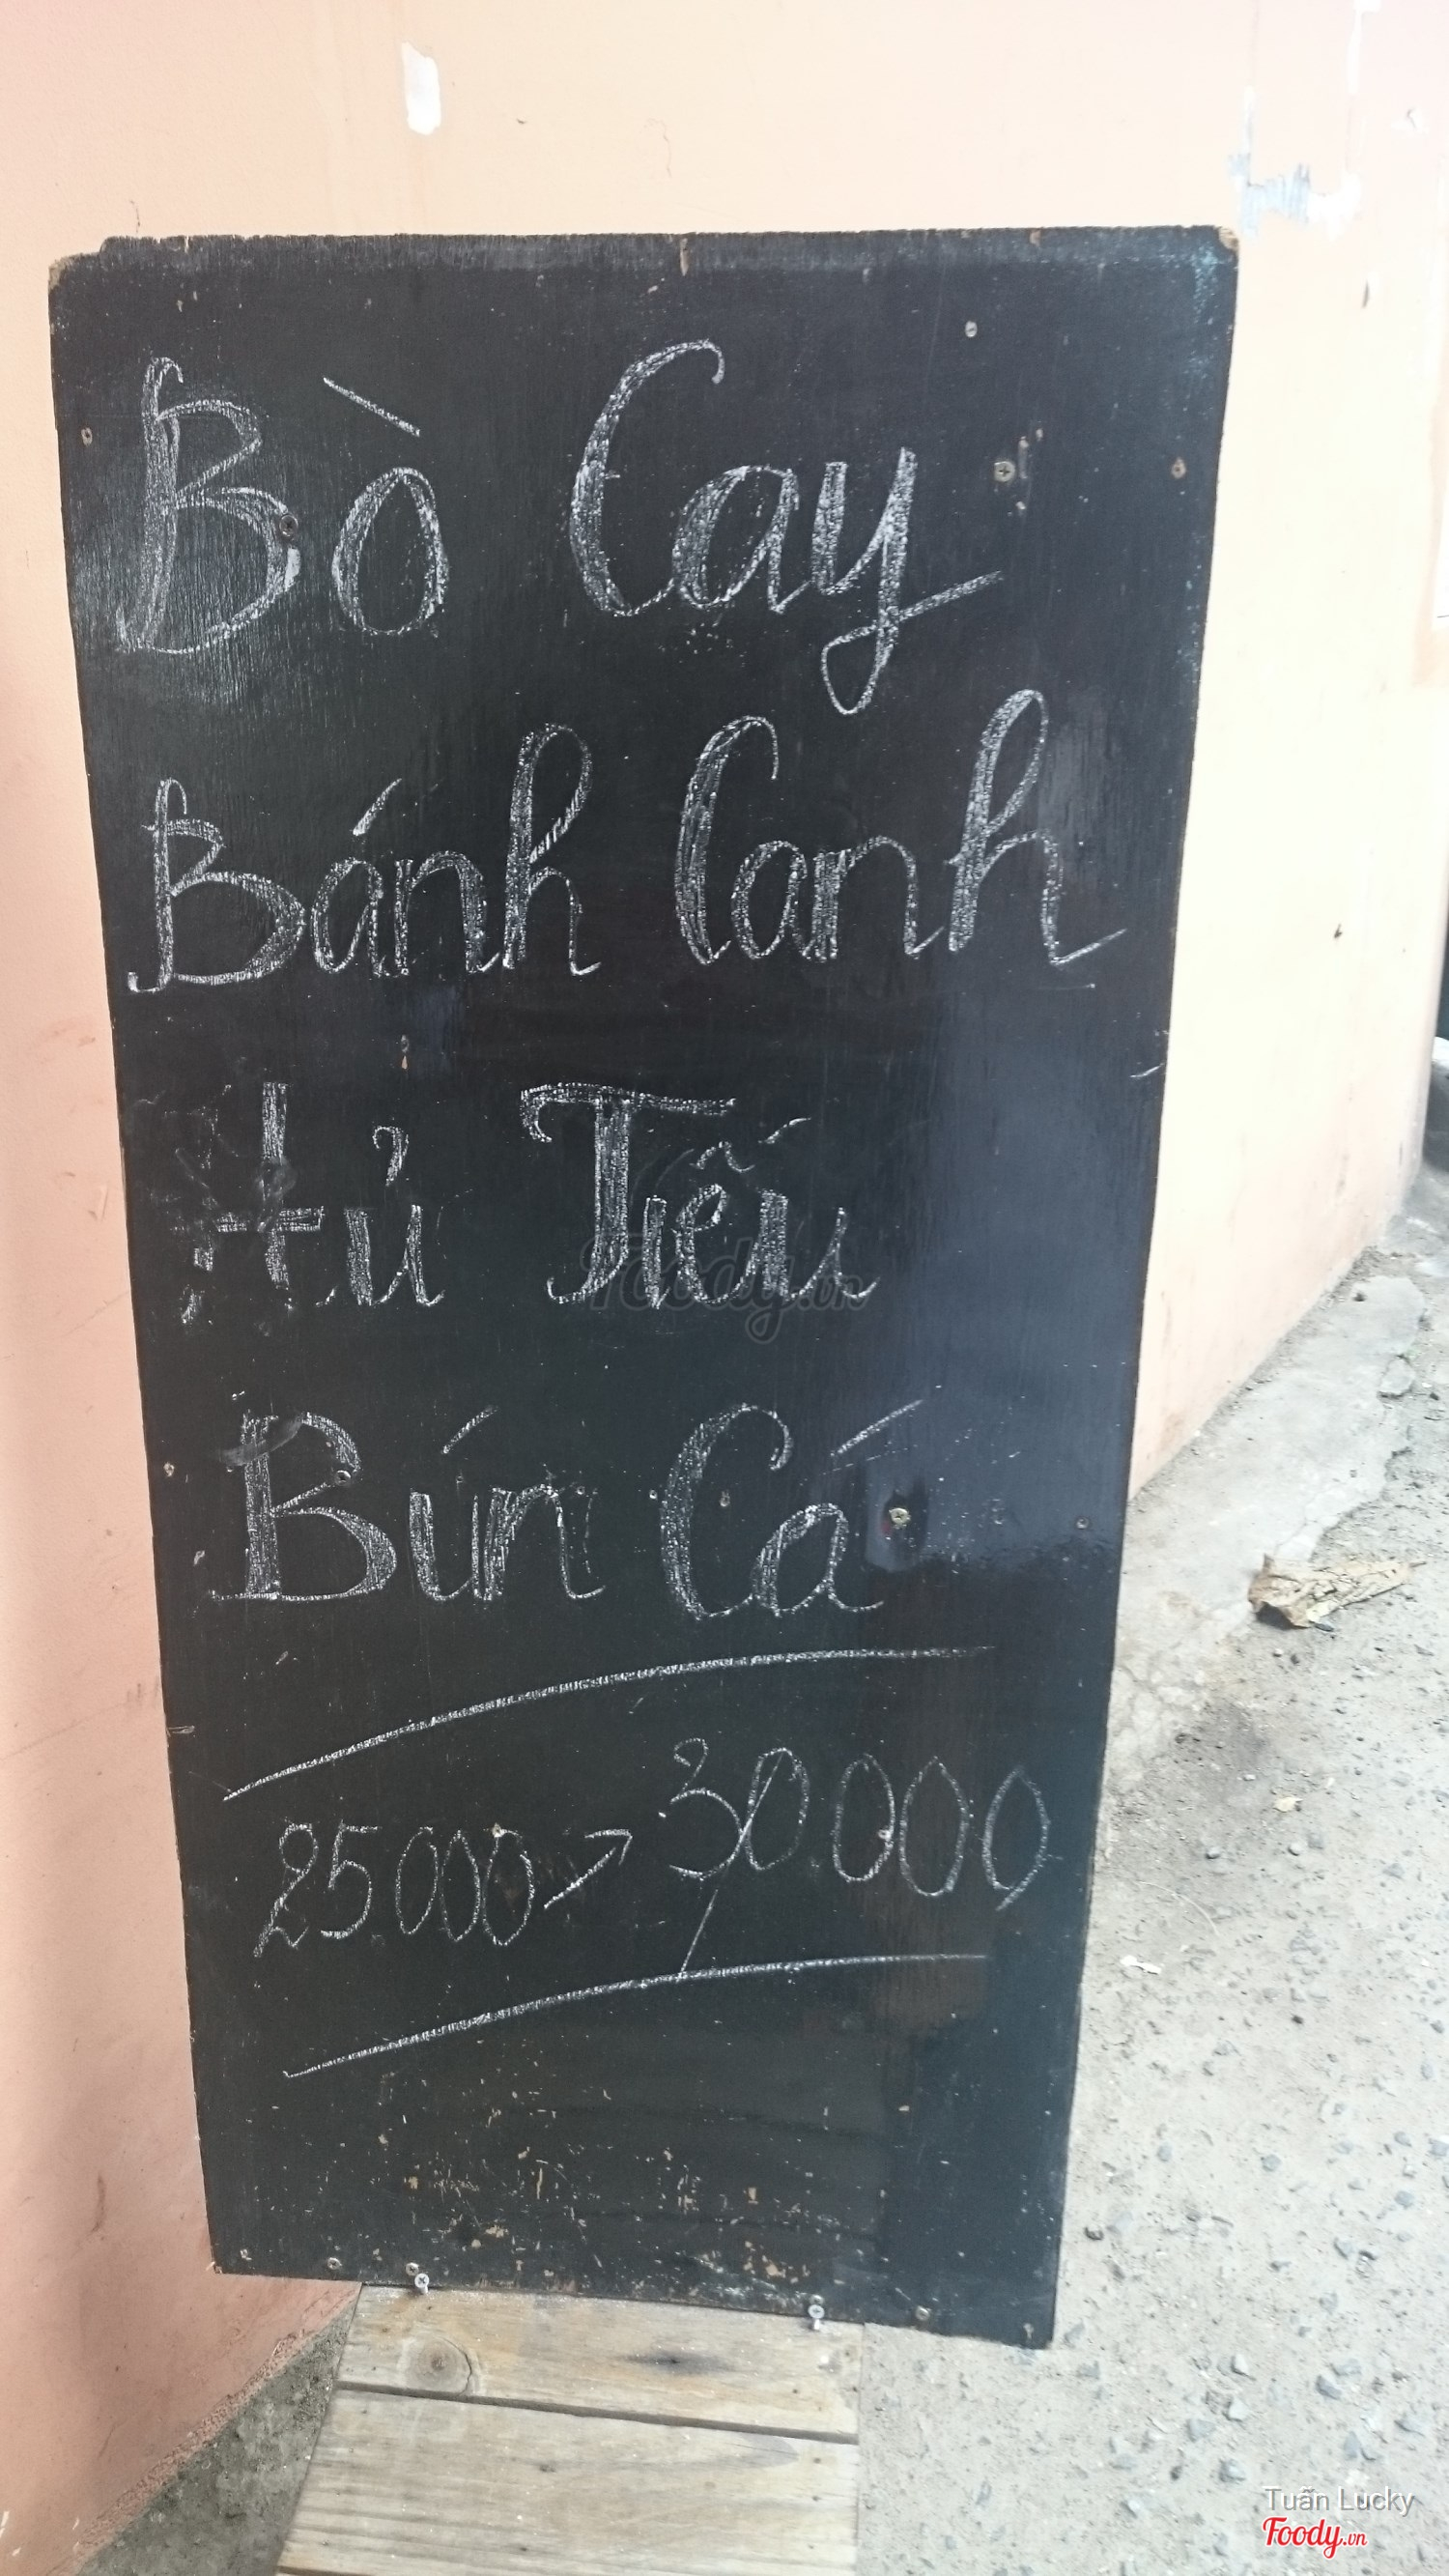 Bò Cay
Bánh Canh
Hủ Tiếu
Bún Cá
25.000 → 30.000
Foody.vn
Tuấn Lucky
Foody.vn